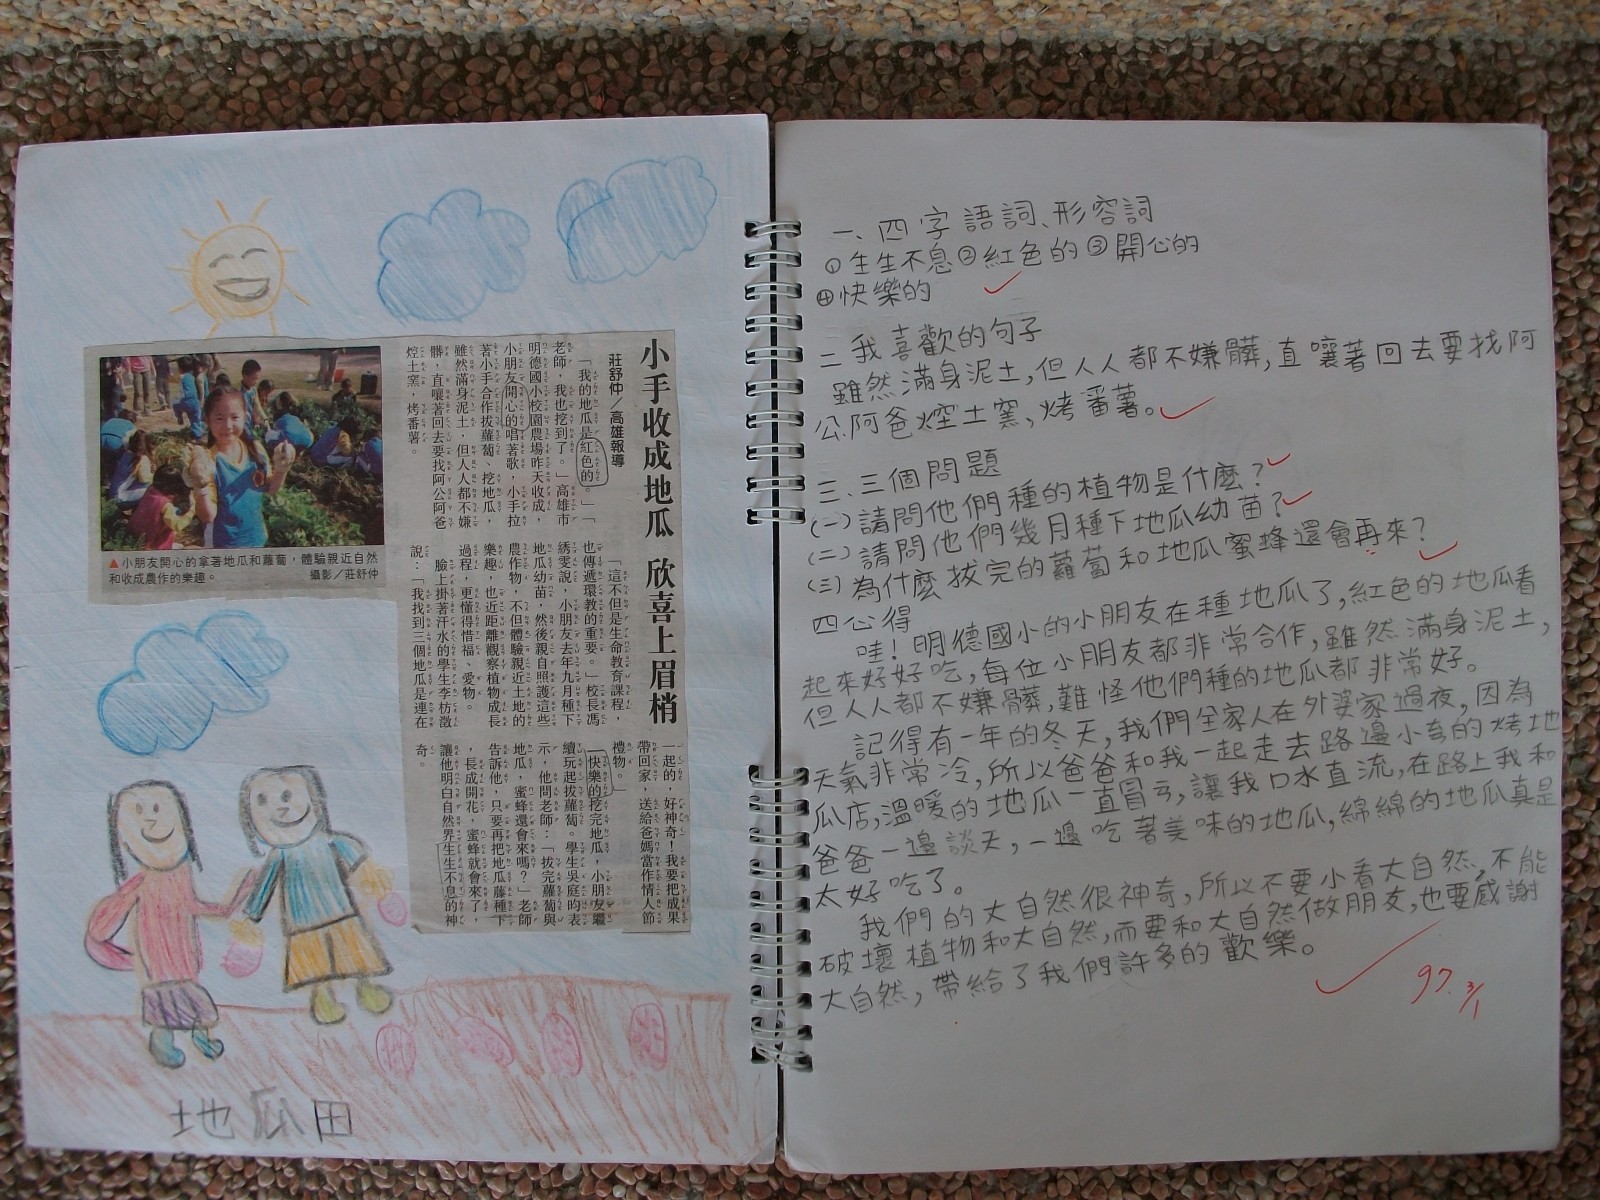 小手收成地瓜 欣喜上眉梢
莊舒仲／高雄報導
「我的地瓜是紅色的。」「
老師，我也挖到了。」高雄市
明德國小校園農場昨天收成，
小朋友開心的唱著歌，小手拉
著小手合作拔蘿蔔、挖地瓜，
雖然滿身泥土，但人人都不嫌
髒，直嚷著回去要找阿公阿爸
焢土窯，烤番薯。
「這不但是生命教育課程，
也傳遞環教的重要。」校長馮
綉雯說，小朋友去年九月種下
地瓜幼苗，然後親自照護這些
農作物，不但體驗親近土地的
樂趣，也近距離觀察植物成長
過程，更懂得惜福、愛物。
臉上掛著汗水的學生李枋澂
說：「我找到三個地瓜是連在
一起的，好神奇！我要把成果
帶回家，送給爸媽當作情人節
禮物。」
快樂的挖完地瓜，小朋友繼
續玩起拔蘿蔔。學生吳庭昀表
示，他問老師：「拔完蘿蔔與
地瓜，蜜蜂還會來嗎？」老師
告訴他，只要再把地瓜藤種下
，長成開花，蜜蜂就會來了，
讓他明白自然界生生不息的神
奇。
▲小朋友開心的拿著地瓜和蘿蔔，體驗親近自然
和收成農作的樂趣。 攝影／莊舒仲
地瓜田
一、四字語詞、形容詞
①生生不息②紅色的③開心的
④快樂的
二我喜歡的句子
雖然滿身泥土，但人人都不嫌髒，直嚷著回去要找阿
公阿爸焢土窯，烤番薯。
三、三個問題
(一)請問他們種的植物是什麼？
(二)請問他們幾月種下地瓜幼苗？
(三)為什麼拔完的蘿蔔和地瓜蜜蜂還會再來？
四心得
哇！明德國小的小朋友在種地瓜了，紅色的地瓜看
起來好好吃，每位小朋友都非常合作，雖然滿身泥土，
但人人都不嫌髒，難怪他們種的地瓜都非常好。
記得有一年的冬天，我們全家人在外婆家過夜，因為
天氣非常冷，所以爸爸和我一起走去路邊小舍的烤地
瓜店，溫暖的地瓜一直冒ㄢ，讓我口水直流，在路上我和
爸爸一邊談天，一邊吃著美味的地瓜，綿綿的地瓜真是
太好吃了。
我們的大自然很神奇，所以不要小看大自然，不能
破壞植物和大自然，而要和大自然做朋友，也要感謝
大自然，帶給了我們許多的歡樂。
97.3/1